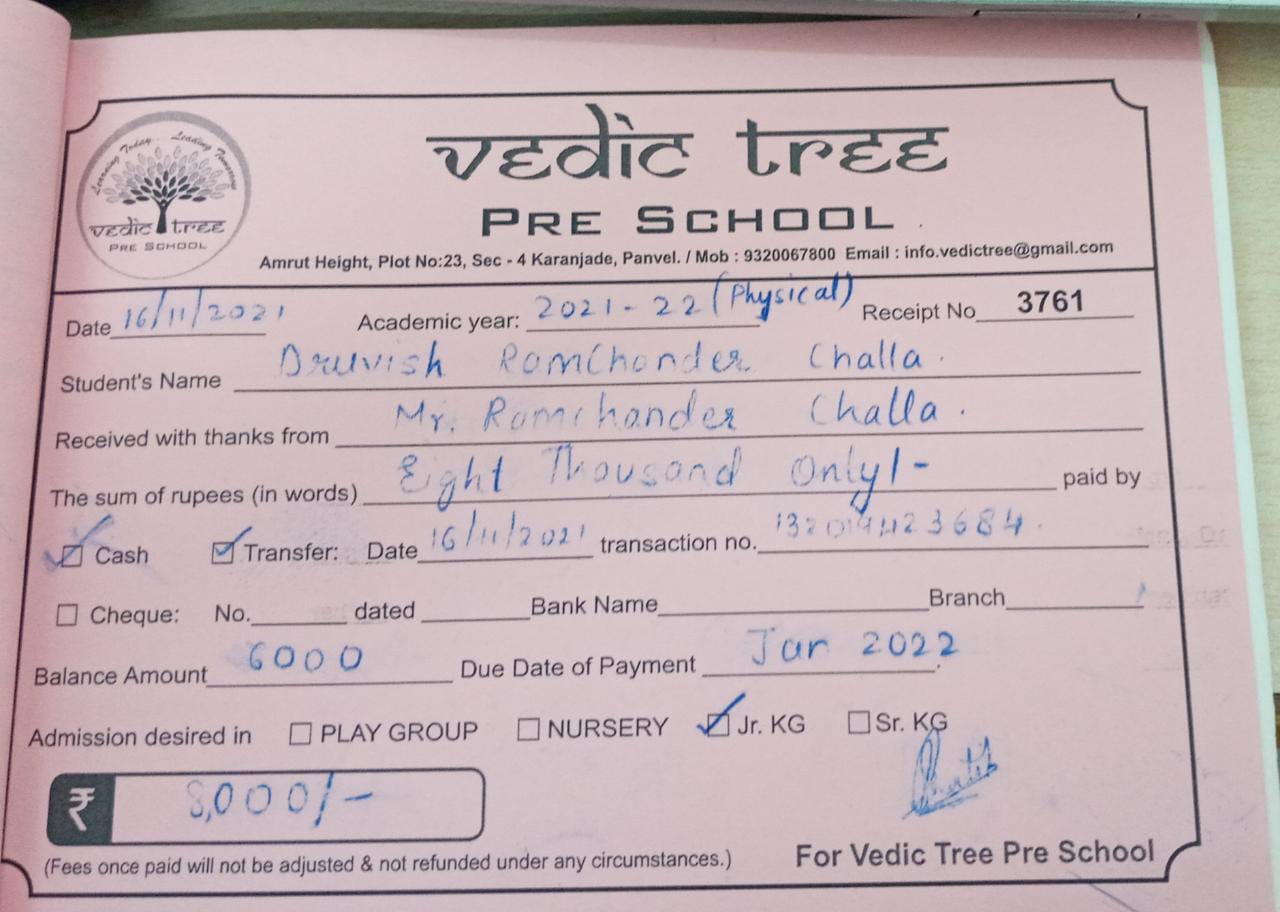 Learning Today.. Leading Tomorrow
vedic tree
PRE SCHOOL
vedic tree
PRE SCHOOL
Amrut Height, Plot No:23, Sec - 4 Karanjade, Panvel. / Mob : 9320067800 Email : info.vedictree@gmail.com
Date 16/11/2021 Academic year: 2021-22 (Physical) Receipt No 3761
Student's Name Druvish Ramchander Challa .
Received with thanks from Mr. Ramchander Challa .
The sum of rupees (in words) Eight Thousand Only/- paid by
Cash Transfer: Date 16/11/2021 transaction no. 132019423684.
Cheque: No. dated Bank Name Branch
Balance Amount 6000 Due Date of Payment Jan 2022
Admission desired in PLAY GROUP NURSERY Jr. KG Sr. KG
₹ 8,000/-
(Fees once paid will not be adjusted & not refunded under any circumstances.) For Vedic Tree Pre School